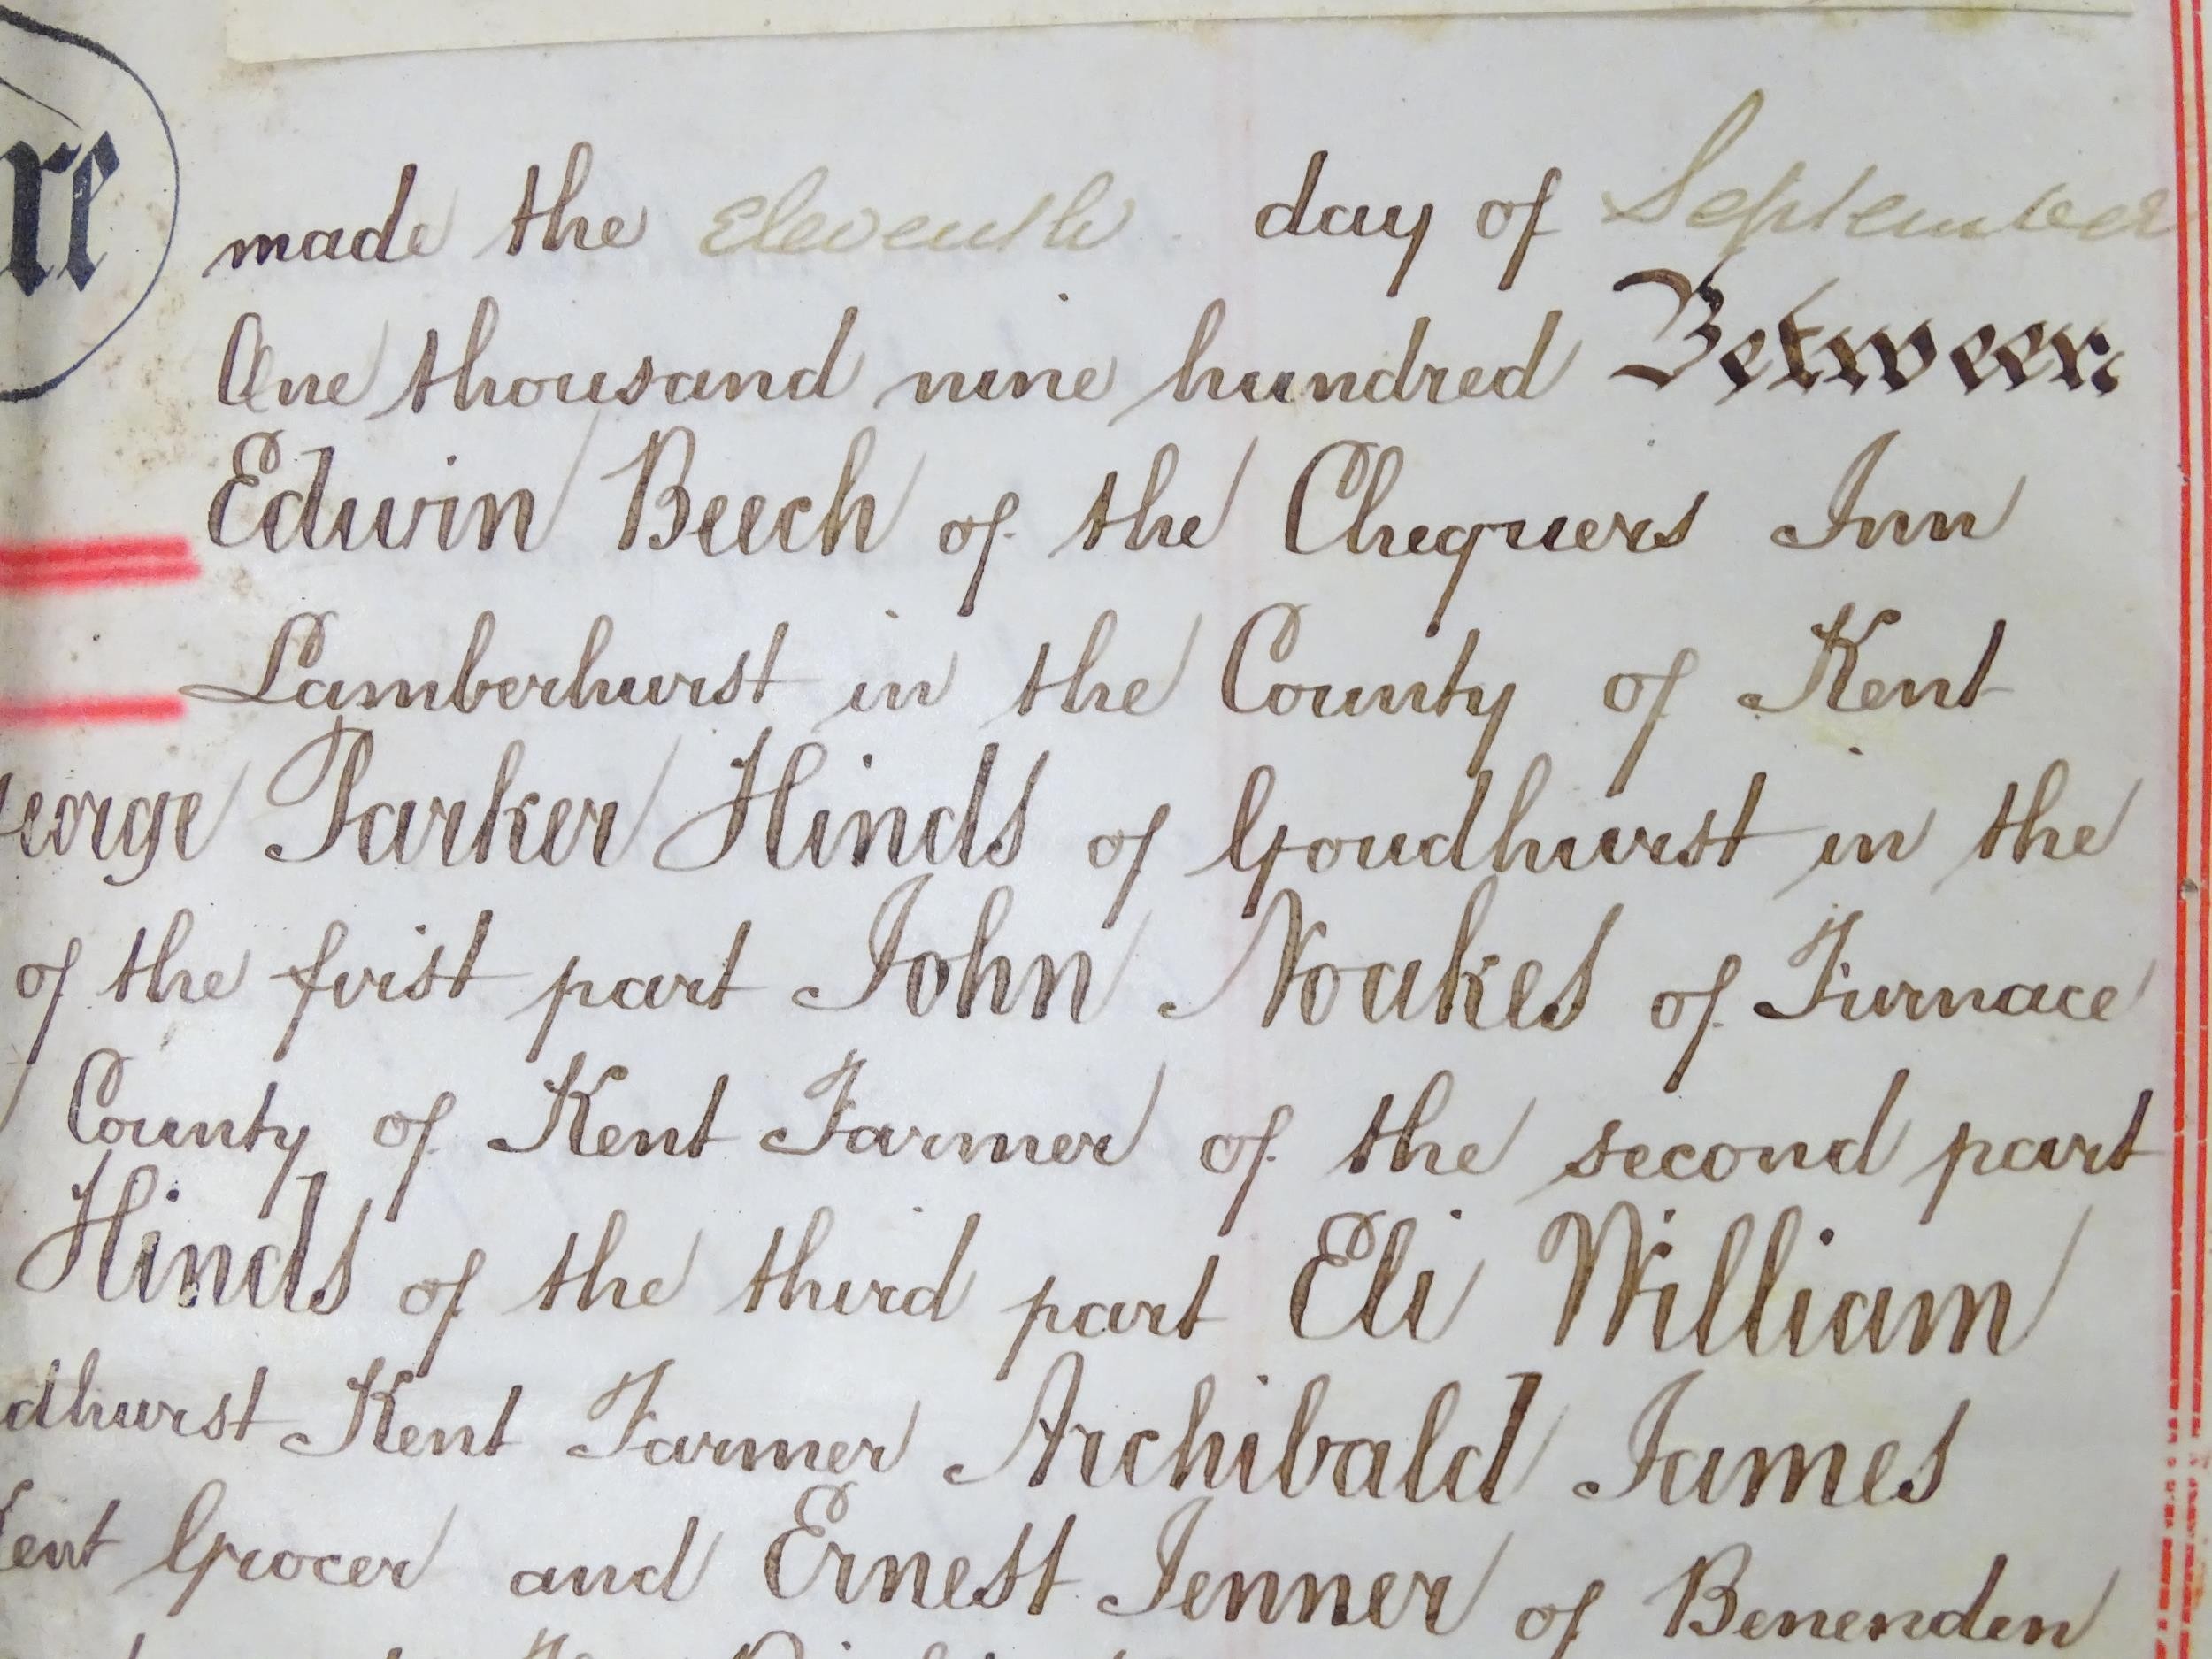 re
made the Eleventh day of September
One thousand nine hundred Between
Edwin Beech of the Chequers Inn
Lamberhurst in the County of Kent
eorge Parker Hinds of Goudhurst in the
of the first part John Noakes of Furnace
County of Kent Farmer of the second part
Hinds of the third part Eli William
dhurst Kent Farmer Archibald James
ent Grocer and Ernest Jenner of Benenden